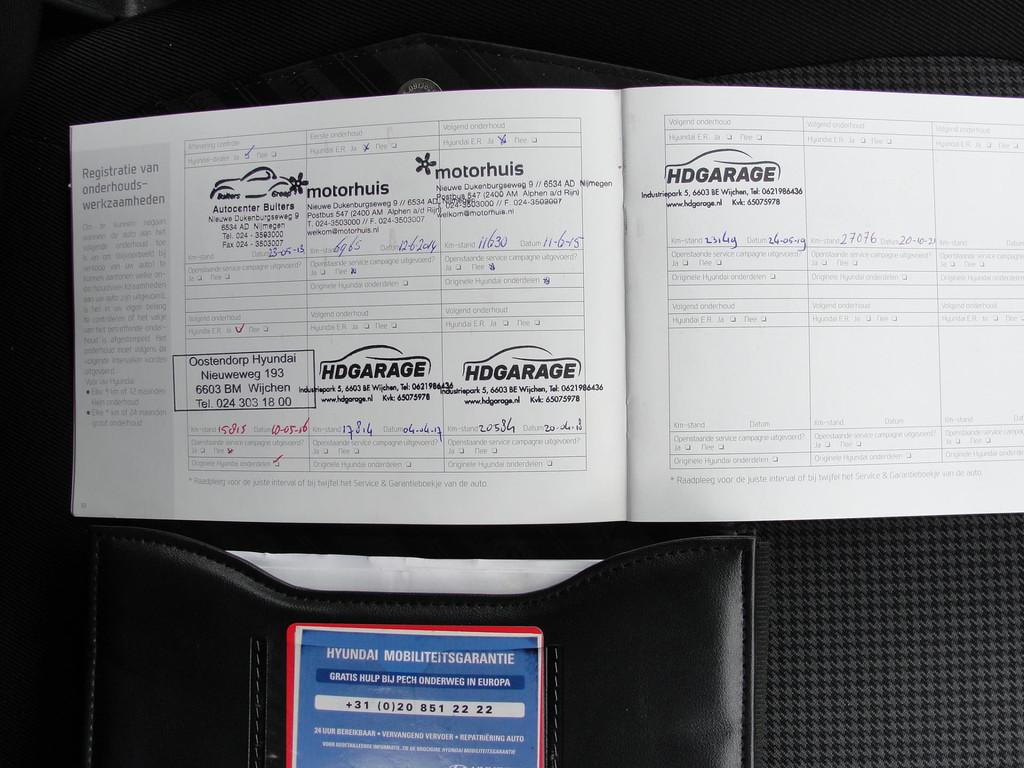 Registratie van
onderhouds-
werkzaamheden
Om te kunnen nagaan
wanneer de auto aan het
volgende onderhoud toe
is en om (bijvoorbeeld) bij
verkoop van uw auto te
kunnen aantonen welke on-
derhoudswerkzaamheden
aan uw auto zijn uitgevoerd,
is het in uw eigen belang
te controleren of het vakje
van het betreffende onder-
houd is afgestempeld. Het
onderhoud moet volgens de
volgende intervallen worden
uitgevoerd.
Voor uw Hyundai:
Aflevering controle
Hyundai-dealer Ja Nee
Buiters Groep
Autocenter Buiters
Nieuwe Dukenburgseweg 9
6534 AD Nijmegen
Tel. 024 - 3503000
Fax 024 - 3503007
Km-stand Datum 23-05-13
Openstaande service campagne uitgevoerd?
Ja Nee
Eerste onderhoud
Hyundai E.R. Ja x Nee
motorhuis
Nieuwe Dukenburgseweg 9 // 6534 AD Nijmegen
Postbus 547 (2400 AM Alphen a/d Rijn)
T. 024-3503000 // F. 024-3503007
welkom@motorhuis.nl
Km-stand 6965 Datum 12-6-2014
Openstaande service campagne uitgevoerd?
Ja Nee x
Originele Hyundai onderdelen
Volgend onderhoud
Hyundai E.R. Ja x Nee
motorhuis
Nieuwe Dukenburgseweg 9 // 6534 AD Nijmegen
Postbus 547 (2400 AM Alphen a/d Rijn)
T. 024-3503000 // F. 024-3503007
welkom@motorhuis.nl
Km-stand 11630 Datum 11-6-15
Openstaande service campagne uitgevoerd?
Ja Nee x
Originele Hyundai onderdelen x
Volgend onderhoud
Hyundai E.R. Ja Nee
Oostendorp Hyundai
Nieuweweg 193
6603 BM Wijchen
Tel. 024 303 18 00
Km-stand 15815 Datum 10-05-16
Openstaande service campagne uitgevoerd?
Ja Nee x
Originele Hyundai onderdelen
Volgend onderhoud
Hyundai E.R. Ja Nee
HDGARAGE
Industriepark 5, 6603 BE Wijchen, Tel: 0621986436
www.hdgarage.nl Kvk: 65075978
Km-stand 17814 Datum 04-04-17
Openstaande service campagne uitgevoerd?
Ja Nee
Originele Hyundai onderdelen
Volgend onderhoud
Hyundai E.R. Ja Nee
HDGARAGE
Industriepark 5, 6603 BE Wijchen, Tel: 0621986436
www.hdgarage.nl Kvk: 65075978
Km-stand 20584 Datum 20-04-18
Openstaande service campagne uitgevoerd?
Ja Nee
Originele Hyundai onderdelen
* Raadpleeg voor de juiste interval of bij twijfel het Service & Garantieboekje van de auto.
Volgend onderhoud
Hyundai E.R. Ja Nee
HDGARAGE
Industriepark 5, 6603 BE Wijchen, Tel: 0621986436
www.hdgarage.nl Kvk: 65075978
Km-stand 23149 Datum 24-05-19
Openstaande service campagne uitgevoerd?
Ja Nee
Originele Hyundai onderdelen
Volgend onderhoud
Hyundai E.R. Ja Nee
Km-stand 27076 Datum 20-10-21
Openstaande service campagne uitgevoerd?
Ja Nee
Originele Hyundai onderdelen
Volgend onderhoud
Hyundai E.R. Ja
Km-stand
Openstaande service
Ja Nee
Originele Hyundai
Volgend onderhoud
Hyundai E.R. Ja Nee
Km-stand Datum
Openstaande service campagne uitgevoerd?
Ja Nee
Originele Hyundai onderdelen
Volgend onderhoud
Hyundai E.R. Ja Nee
Km-stand Datum
Openstaande service campagne uitgevoerd?
Ja Nee
Originele Hyundai onderdelen
Volgend onderhoud
Hyundai E.R. Ja
Km-stand
Openstaande service
Ja Nee
Originele Hyundai
* Raadpleeg voor de juiste interval of bij twijfel het Service & Garantieboekje van de auto.
HYUNDAI MOBILITEITSGARANTIE
GRATIS HULP BIJ PECH ONDERWEG IN EUROPA
+31 (0)20 851 22 22
24 UUR BEREIKBAAR • VERVANGEND VERVOER • REPATRIËRING AUTO
VOOR GEDETAILLEERDE INFORMATIE, ZIE DE BROCHURE HYUNDAI MOBILITEITSGARANTIE